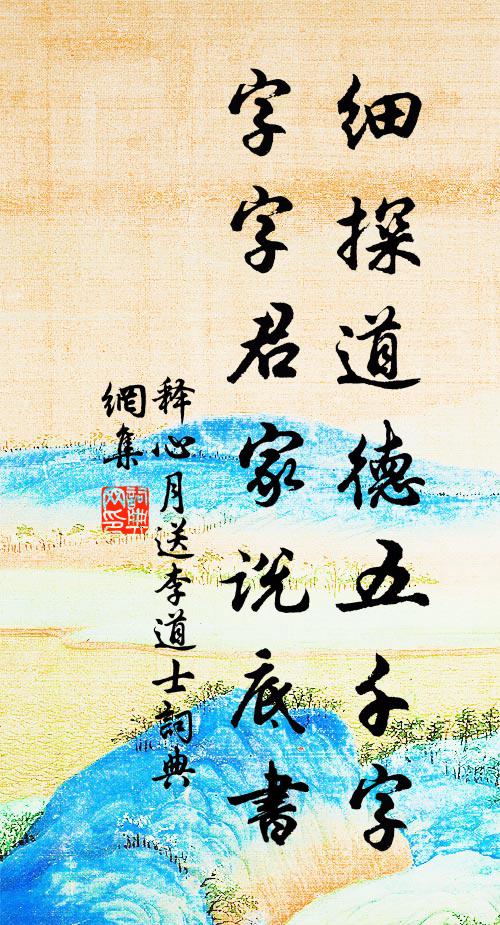 细探道德五千字
字字君家说底书
释心月送李道士詞典
網集
詞典
网印